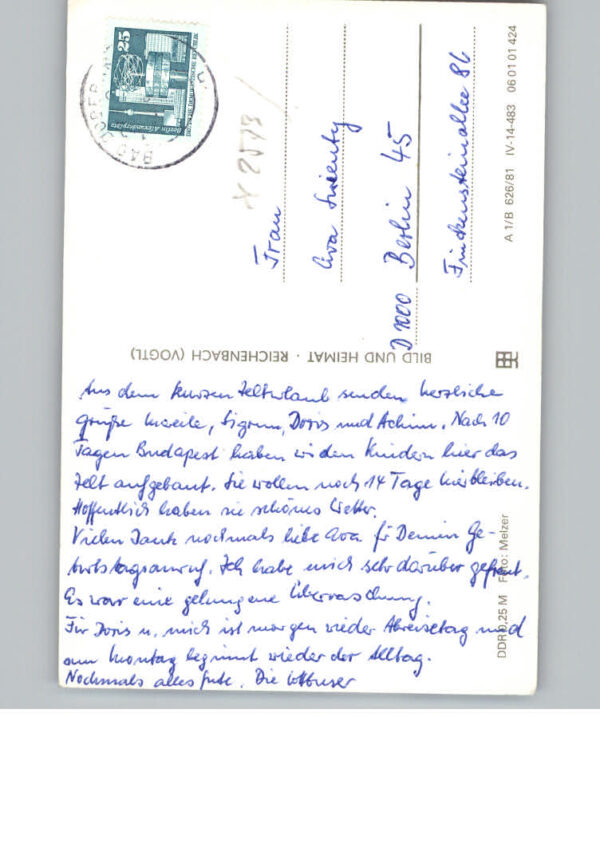 25
Berlin, Alexanderplatz
BAD
x 2573
Frau
Eva
D 1000 Berlin 45
Finckensteinallee 86
A 1/B 626/81 IV-14-483 06 01 01 424
BILD UND HEIMAT · REICHENBACH (VOGTL)
Aus dem kurzen Zelturlaub senden herzliche
Grüße Mareile, Sigrun, Doris und Achim. Nach 10
Tagen Budapest haben wir den Kindern hier das
Zelt aufgebaut. Sie wollen noch 14 Tage hierbleiben.
Hoffentlich haben sie schönes Wetter.
Vielen Dank nochmals liebe Eva für Deinen Ge-
burtstagsanruf. Ich habe mich sehr darüber gefreut.
Es war eine gelungene Überraschung.
Für Doris u. mich ist morgen wieder Abreisetag und
am Montag beginnt wieder der Alltag.
Nochmals alles Gute. Die Cottbuser
DDR 0,25 M Foto: Melzer